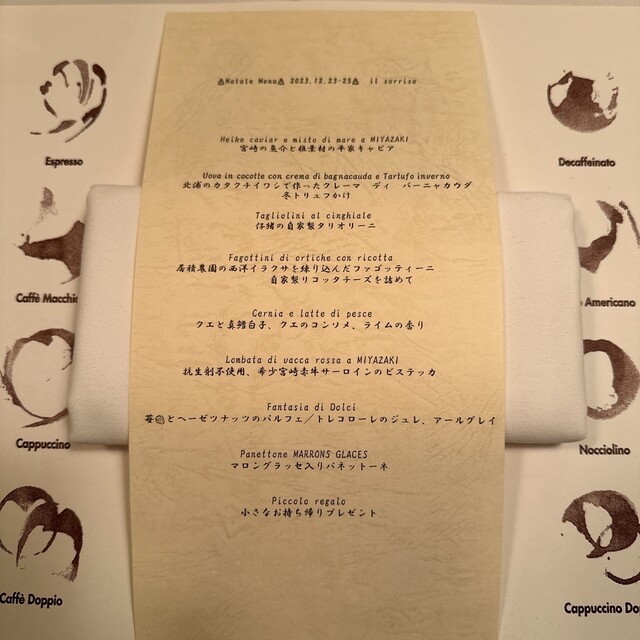 Natale Menu 2023.12.23-25 il sorriso
Heike caviar e misto di mare a MIYAZAKI
宮崎の魚介と椎葉村の平家キャビア
Uova in cocotte con crema di bagnacauda e Tartufo inverno
北浦のカタクチイワシで作ったクレーマ ディ バーニャカウダ
冬トリュフかけ
Tagliolini al cinghiale
仔猪の自家製タリオリーニ
Fagottini di ortiche con ricotta
居積農園の西洋イラクサを練り込んだファゴッティーニ
自家製リコッタチーズを詰めて
Cernia e latte di pesce
クエと真鱈白子、クエのコンソメ、ライムの香り
Lombata di vacca rossa a MIYAZAKI
抗生剤不使用、希少宮崎赤牛サーロインのビステッカ
Fantasia di Dolci
苺とヘーゼツナッツのパルフェ/トレコローレのジュレ、アールグレイ
Panettone MARRONS GLACES
マロングラッセ入りパネットーネ
Piccolo regalo
小さなお持ち帰りプレゼント
Espresso
Caffè Macchia
Cappuccino
Caffè Doppio
Decaffeinato
Americano
Nocciolino
Cappuccino Do